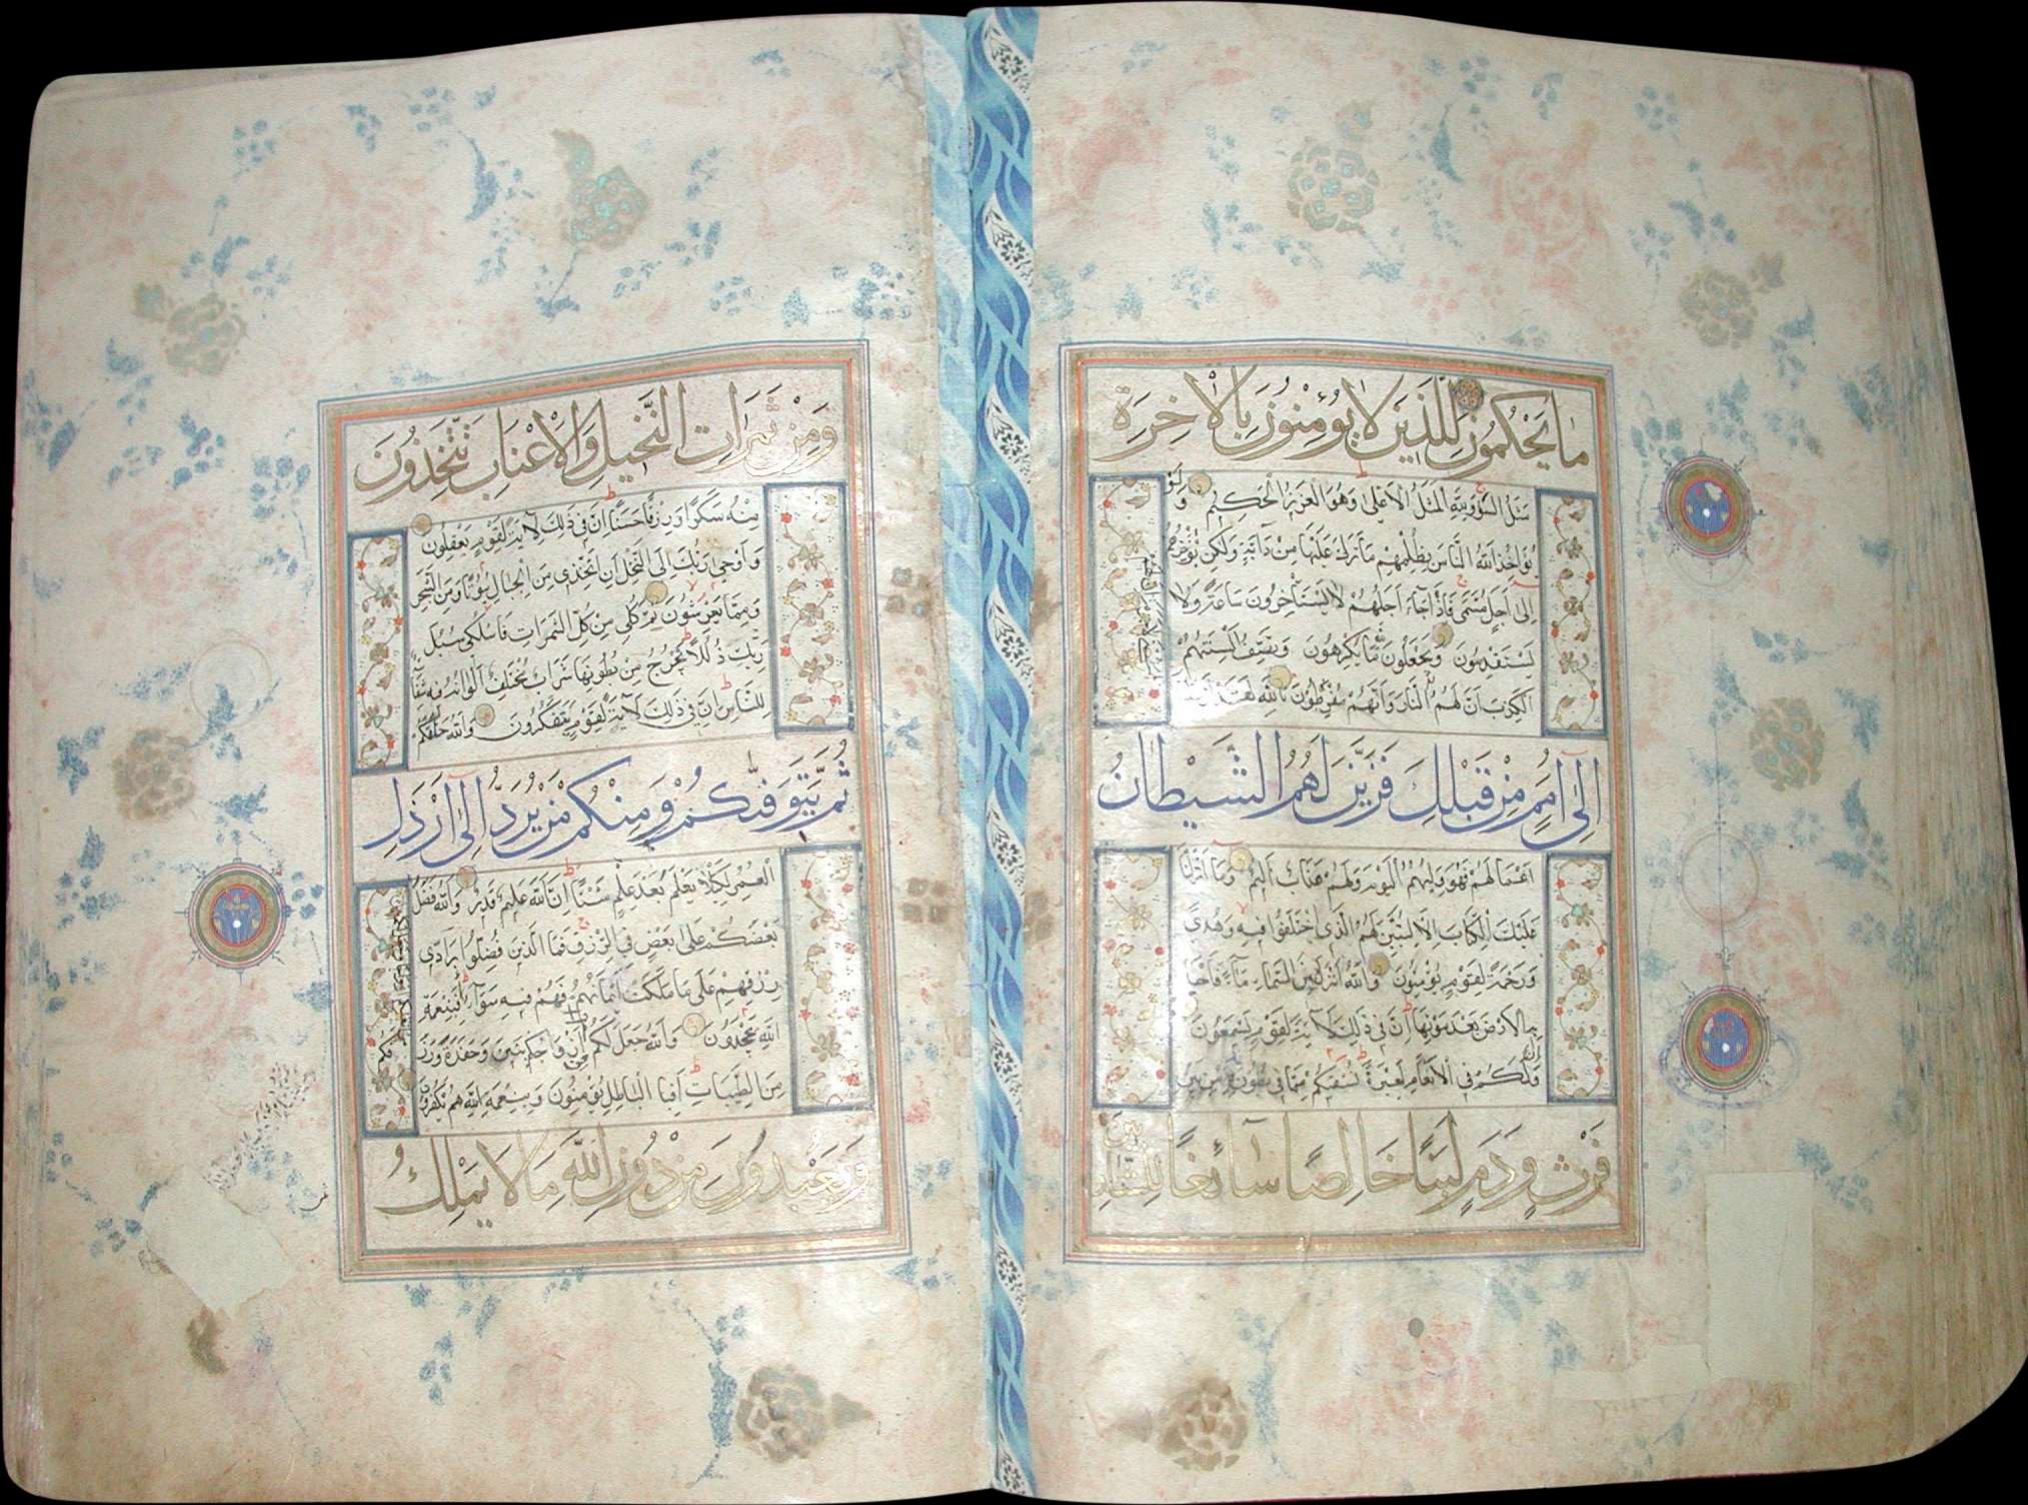 ما يَحْكُمُونَ لِلَّذِينَ لَا يُؤْمِنُونَ بِالْآخِرَةِ
مَثَلُ السَّوْءِ وَلِلَّهِ الْمَثَلُ الْأَعْلَى وَهُوَ الْعَزِيزُ الْحَكِيمُ وَلَوْ
يُؤَاخِذُ اللَّهُ النَّاسَ بِظُلْمِهِمْ مَا تَرَكَ عَلَيْهَا مِنْ دَابَّةٍ وَلَكِنْ يُؤَخِّرُهُمْ
إِلَى أَجَلٍ مُسَمًّى فَإِذَا جَاءَ أَجَلُهُمْ لَا يَسْتَأْخِرُونَ سَاعَةً وَلَا
يَسْتَقْدِمُونَ وَيَجْعَلُونَ لِلَّهِ مَا يَكْرَهُونَ وَتَصِفُ أَلْسِنَتُهُمُ
الْكَذِبَ أَنَّ لَهُمُ النَّارَ وَأَنَّهُمْ مُفْرَطُونَ تَاللَّهِ لَقَدْ
إِلَى أُمَمٍ مِنْ قَبْلِكَ فَزَيَّنَ لَهُمُ الشَّيْطَانُ
أَعْمَالَهُمْ فَهُوَ وَلِيُّهُمُ الْيَوْمَ وَلَهُمْ عَذَابٌ أَلِيمٌ وَمَا أَنْزَلْنَا
عَلَيْكَ الْكِتَابَ إِلَّا لِتُبَيِّنَ لَهُمُ الَّذِي اخْتَلَفُوا فِيهِ وَهُدًى
وَرَحْمَةً لِقَوْمٍ يُؤْمِنُونَ وَاللَّهُ أَنْزَلَ مِنَ السَّمَاءِ مَاءً فَأَحْيَا
بِهِ الْأَرْضَ بَعْدَ مَوْتِهَا إِنَّ فِي ذَلِكَ لَآيَةً لِقَوْمٍ يَسْمَعُونَ
وَإِنَّ لَكُمْ فِي الْأَنْعَامِ لَعِبْرَةً نُسْقِيكُمْ مِمَّا فِي بُطُونِهِ مِنْ بَيْنِ
فَرْثٍ وَدَمٍ لَبَنًا خَالِصًا سَائِغًا لِلشَّارِبِينَ
وَمِنْ ثَمَرَاتِ النَّخِيلِ وَالْأَعْنَابِ تَتَّخِذُونَ
مِنْهُ سَكَرًا وَرِزْقًا حَسَنًا إِنَّ فِي ذَلِكَ لَآيَةً لِقَوْمٍ يَعْقِلُونَ
وَأَوْحَى رَبُّكَ إِلَى النَّحْلِ أَنِ اتَّخِذِي مِنَ الْجِبَالِ بُيُوتًا وَمِنَ الشَّجَرِ
وَمِمَّا يَعْرِشُونَ ثُمَّ كُلِي مِنْ كُلِّ الثَّمَرَاتِ فَاسْلُكِي سُبُلَ
رَبِّكِ ذُلُلًا يَخْرُجُ مِنْ بُطُونِهَا شَرَابٌ مُخْتَلِفٌ أَلْوَانُهُ فِيهِ شِفَاءٌ
لِلنَّاسِ إِنَّ فِي ذَلِكَ لَآيَةً لِقَوْمٍ يَتَفَكَّرُونَ وَاللَّهُ خَلَقَكُمْ
ثُمَّ يَتَوَفَّاكُمْ وَمِنْكُمْ مَنْ يُرَدُّ إِلَى أَرْذَلِ
الْعُمُرِ لِكَيْلَا يَعْلَمَ بَعْدَ عِلْمٍ شَيْئًا إِنَّ اللَّهَ عَلِيمٌ قَدِيرٌ وَاللَّهُ فَضَّلَ
بَعْضَكُمْ عَلَى بَعْضٍ فِي الرِّزْقِ فَمَا الَّذِينَ فُضِّلُوا بِرَادِّي
رِزْقِهِمْ عَلَى مَا مَلَكَتْ أَيْمَانُهُمْ فَهُمْ فِيهِ سَوَاءٌ أَفَبِنِعْمَةِ
اللَّهِ يَجْحَدُونَ وَاللَّهُ جَعَلَ لَكُمْ مِنْ
مِنَ الطَّيِّبَاتِ أَفَبِالْبَاطِلِ يُؤْمِنُونَ وَبِنِعْمَةِ اللَّهِ هُمْ يَكْفُرُونَ
وَيَعْبُدُونَ مِنْ دُونِ اللَّهِ مَا لَا يَمْلِكُ